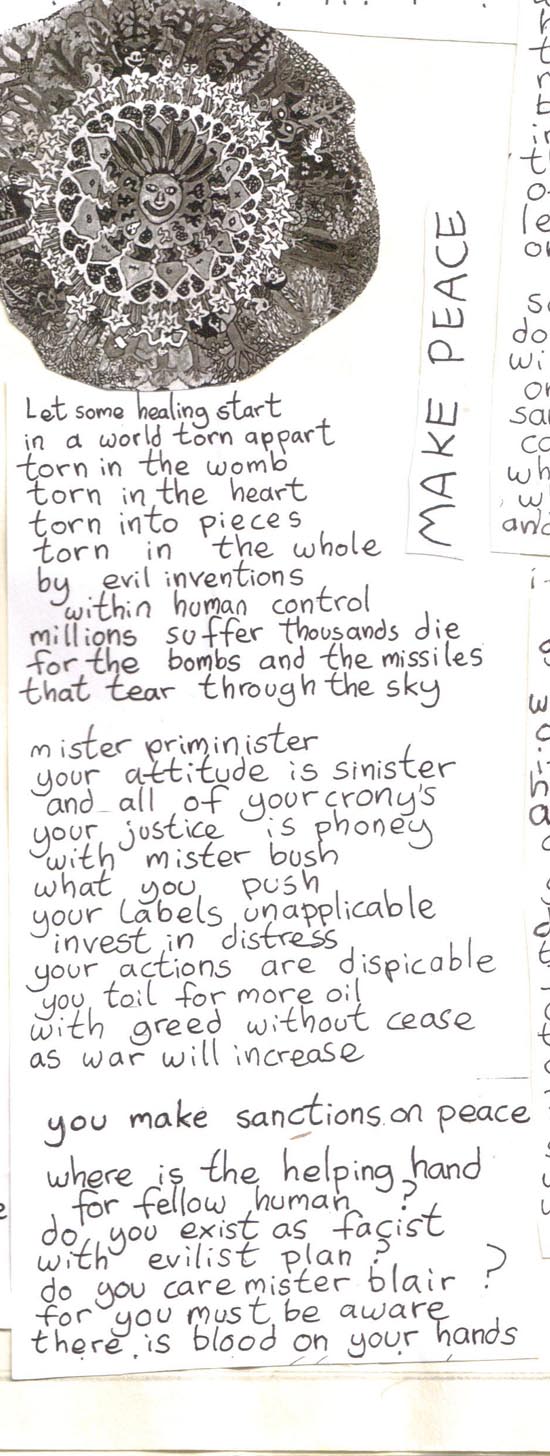 MAKE PEACE
Let some healing start
in a world torn appart
torn in the womb
torn in the heart
torn into pieces
torn in the whole
by evil inventions
within human control
millions suffer thousands die
for the bombs and the missiles
that tear through the sky
mister priminister
your attitude is sinister
and all of your crony's
your justice is phoney
with mister bush
what you push
your labels unapplicable
invest in distress
your actions are dispicable
you toil for more oil
with greed without cease
as war will increase
you make sanctions on peace
where is the helping hand
for fellow human ?
do you exist as facist
with evilist plan ?
do you care mister blair ?
for you must be aware
there is blood on your hands